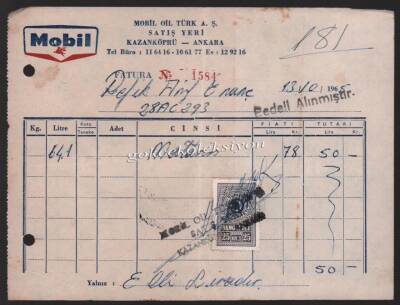 Mobil
MOBİL OİL TÜRK A. Ş.
SATIŞ YERİ
KAZANKÖPRÜ — ANKARA
Tel Büro : 11 64 16 - 10 61 77 Ev : 12 92 16
181
FATURA № 1584
13.10.1965
Refik Arif
28AC293
Bedeli Alınmıştır.
Kg. Litre Kutu Teneke Adet CİNSİ FİATI Lira Kr. TUTARI Lira Kr.
64,1 78 50 —
gold koleksiyon
25 25
50 —
Yalnız : Elli Liradır